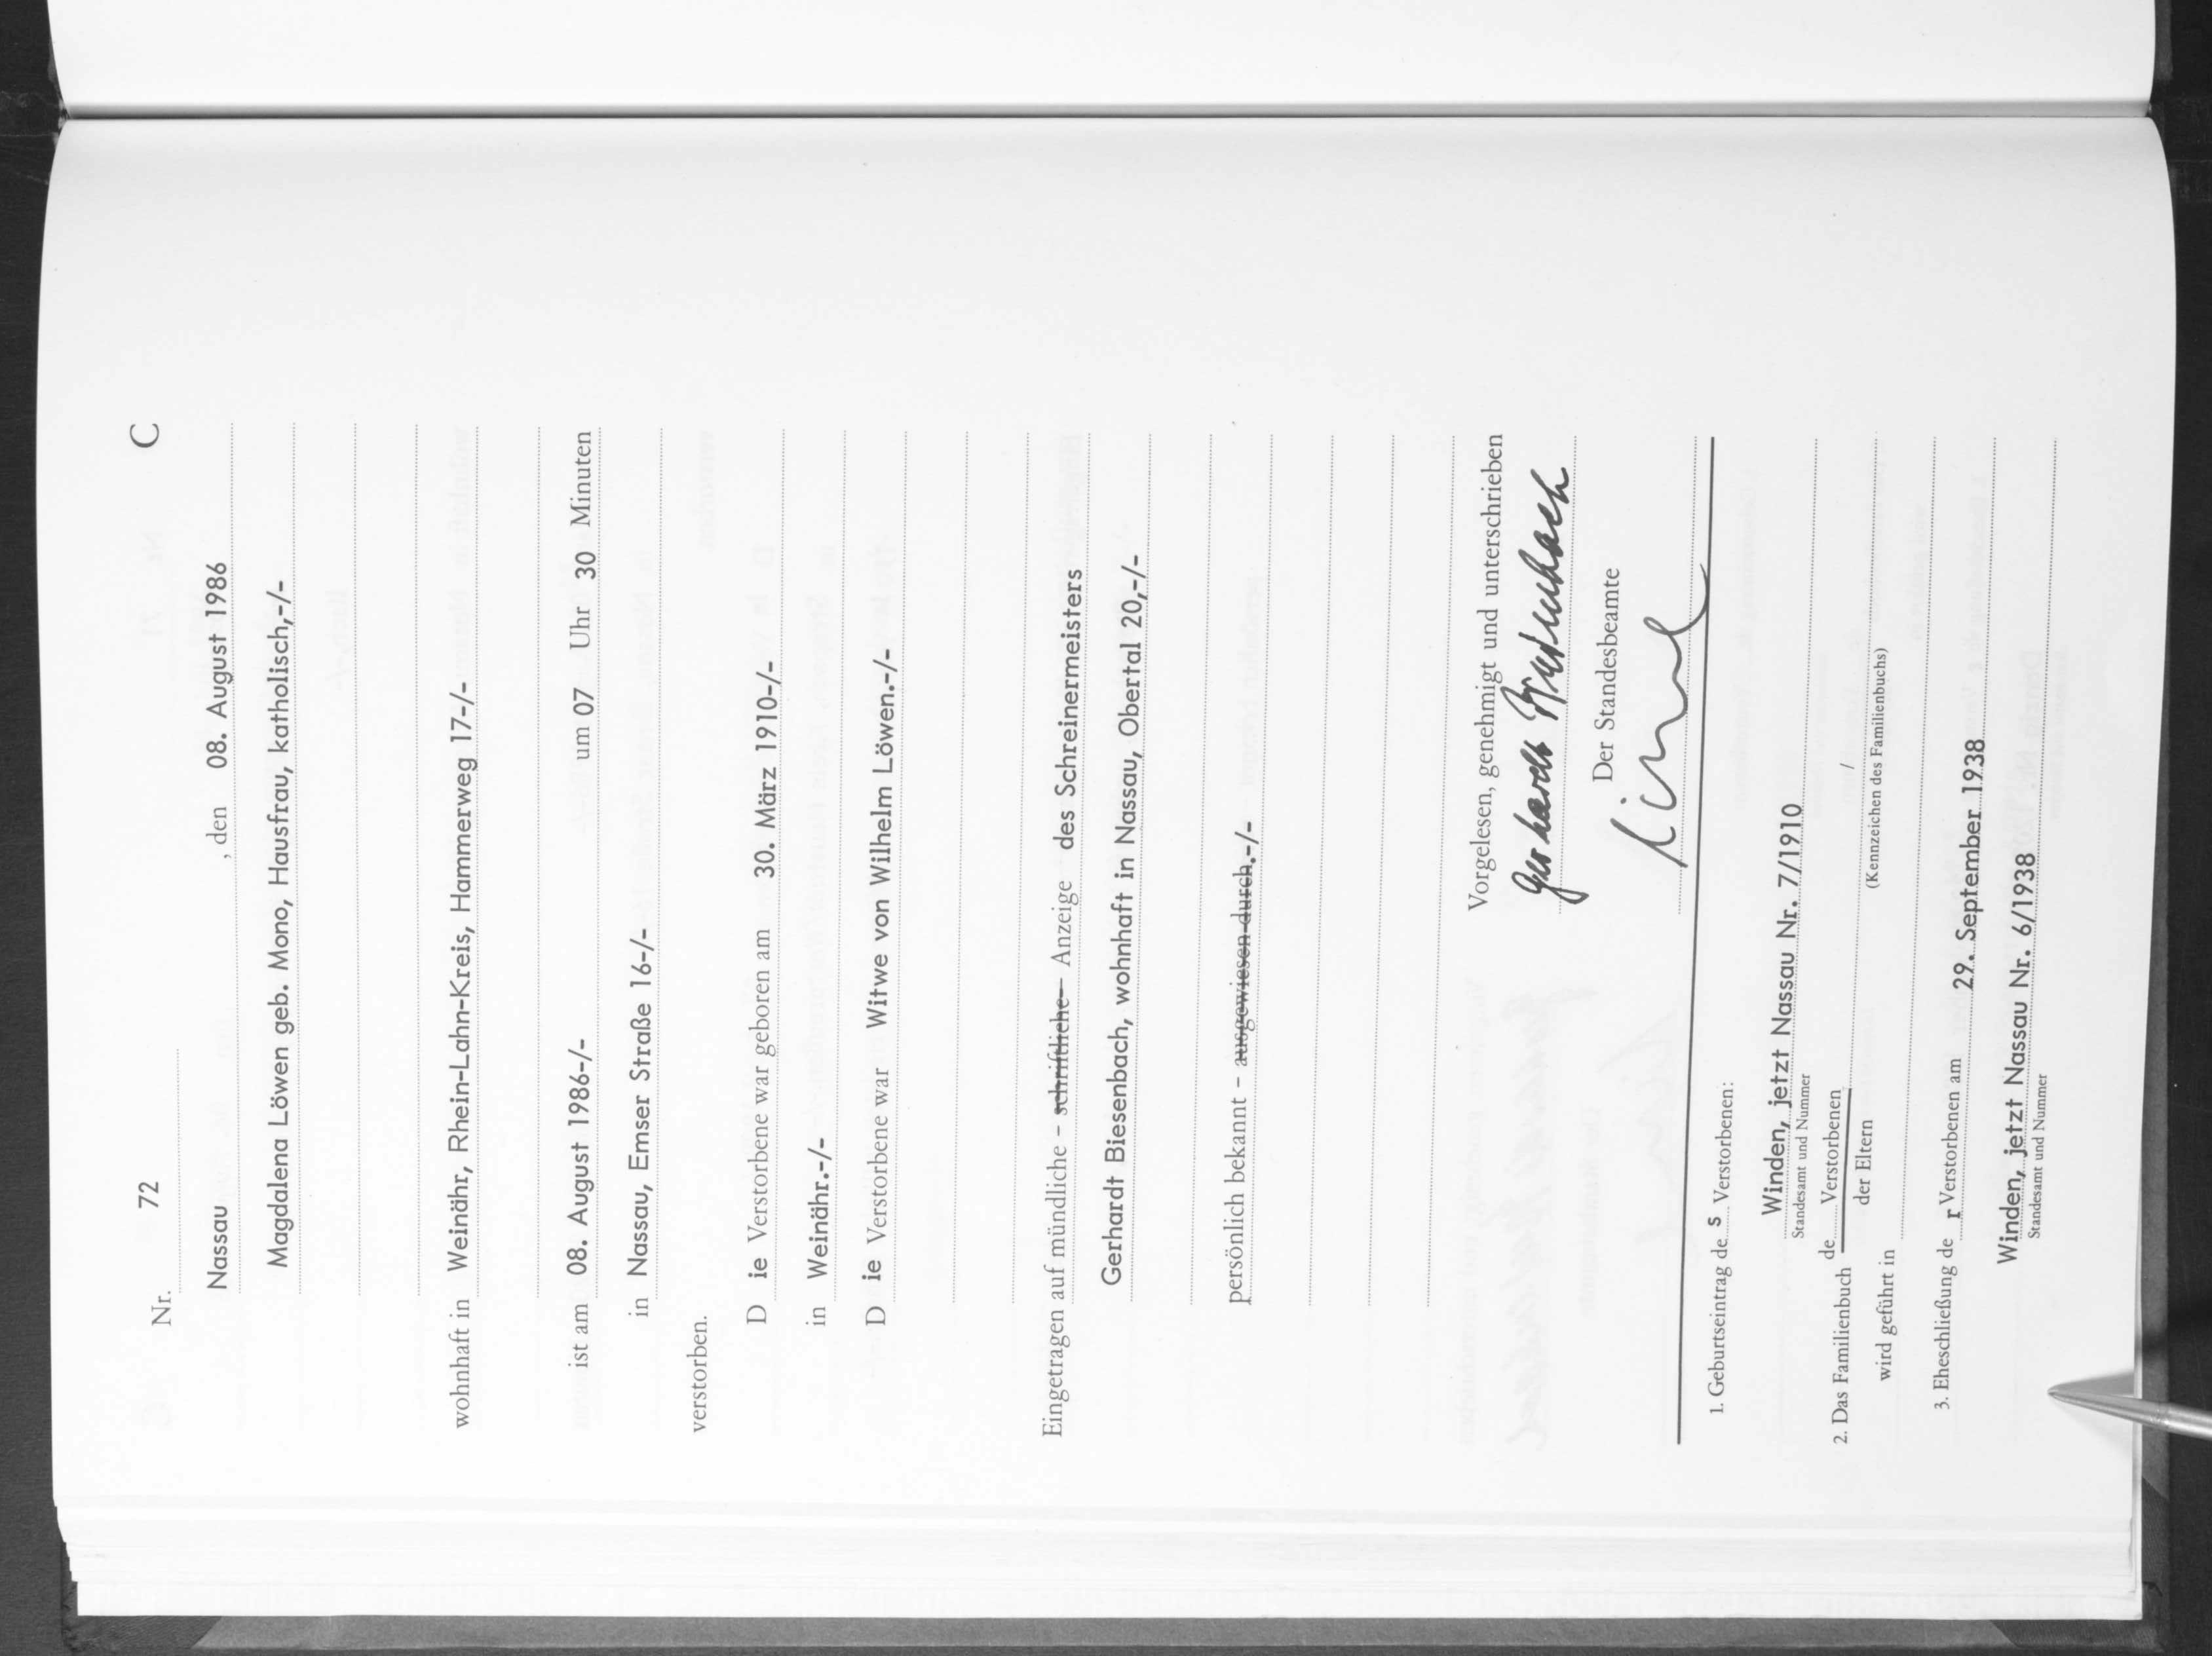 Nr. 72 C
Nassau , den 08. August 1986
Magdalena Löwen geb. Mono, Hausfrau, katholisch,-/-
wohnhaft in Weinähr, Rhein-Lahn-Kreis, Hammerweg 17-/-
ist am 08. August 1986-/- um 07 Uhr 30 Minuten
in Nassau, Emser Straße 16-/-
verstorben.
D ie Verstorbene war geboren am 30. März 1910-/-
in Weinähr.-/-
D ie Verstorbene war Witwe von Wilhelm Löwen.-/-
Eingetragen auf mündliche - schriftliche - Anzeige des Schreinermeisters
Gerhardt Biesenbach, wohnhaft in Nassau, Obertal 20,-/-
persönlich bekannt - ausgewiesen durch.-/-
Vorgelesen, genehmigt und unterschrieben
Gerhardt Biesenbach
Der Standesbeamte
1. Geburtseintrag de s Verstorbenen:
Winden, jetzt Nassau Nr. 7/1910
Standesamt und Nummer
2. Das Familienbuch de Verstorbenen
der Eltern /
wird geführt in (Kennzeichen des Familienbuchs)
3. Eheschließung de r Verstorbenen am 29. September 1938
Winden, jetzt Nassau Nr. 6/1938
Standesamt und Nummer